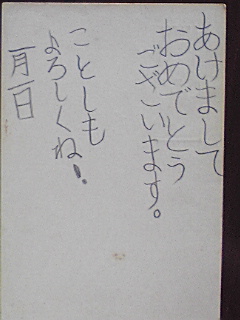 あけまして
おめでとう
ございます。
ことしも
よろしくね!
一月一日